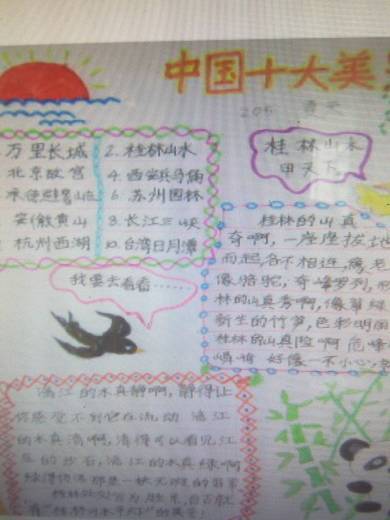 中国十大美
205
桂林山水
甲天下
万里长城 2.桂林山水
北京故宫 4.西安兵马俑
承德避暑山庄 6.苏州园林
安徽黄山 8.长江三峡
杭州西湖 10.台湾日月潭
我要去看看……
桂林的山真
奇啊,一座座拔地
而起各不相连,像老
像骆驼,奇峰罗列,形
林的山真秀啊,像翠绿
新生的竹笋,色彩明丽
桂林的山真险啊危峰
好像一不小心,
漓江的水真静啊,静得让
你感觉不到它在流动 漓江
的水真清啊,清得可以看见江
底的沙石,漓江的水真绿啊
绿得仿佛那是一块无瑕的翡翠